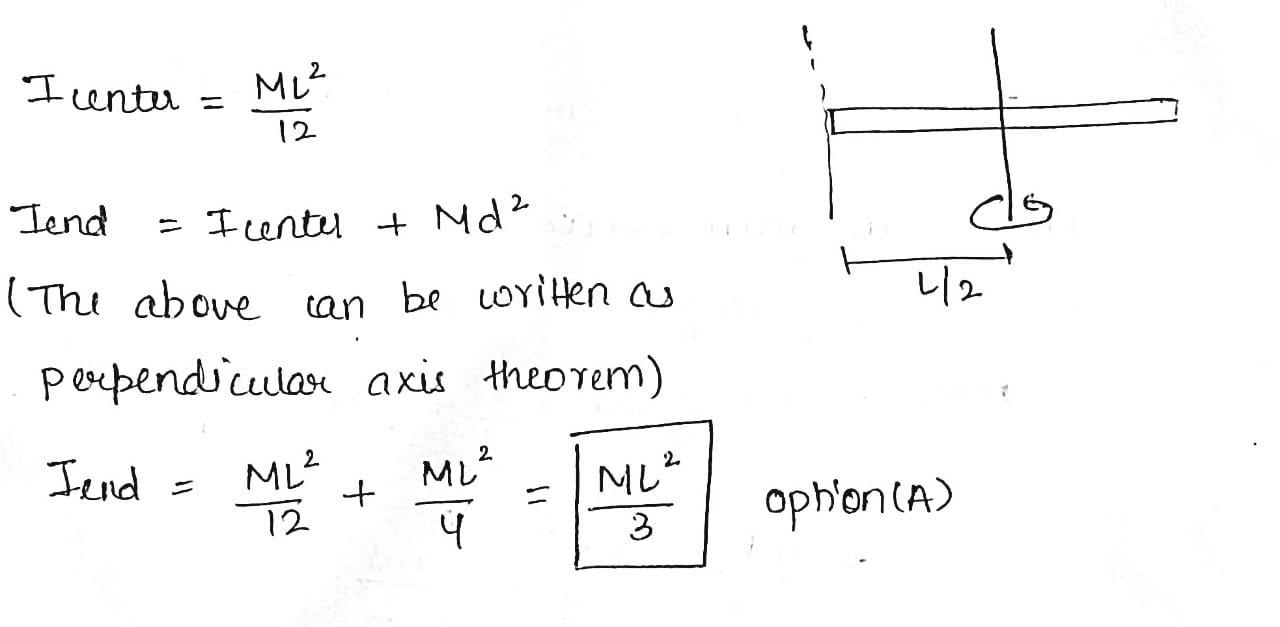 I center = ML²/12
L/2
Iend = I center + Md²
(The above can be written as
perpendicular axis theorem)
Iend = ML²/12 + ML²/4 = ML²/3 option (A)